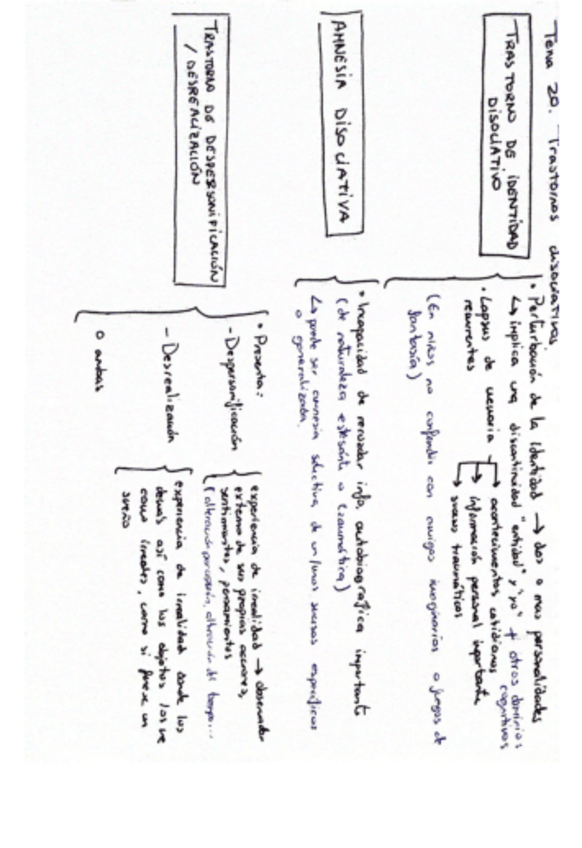 Tema 20. Trastornos disociativos
TRASTORNO DE IDENTIDAD
DISOCIATIVO
• Perturbación de la identidad → dos o mas personalidades
↳ implica una discontinuidad "entidad" y "yo" + otros dominios
cognitivos
• Lapsus de memoria → acontecimientos cotidianos
recurrentes → información personal importante
→ sucesos traumáticos
(En niños no confundir con amigos imaginarios o juegos de
fantasía)
AMNESIA DISOCIATIVA
• Incapacidad de recordar info. autobiográfica importante
(de naturaleza estresante o traumática)
↳ puede ser amnesia selectiva de un/unos sucesos específicos
o generalizada.
TRASTORNO DE DESPERSONIFICACIÓN
/ DESREALIZACIÓN
• Presenta:
- Despersonificación
experiencia de irrealidad → observador
externo de sus propias acciones,
sentimientos, pensamientos
(alteración percepción, alteración del tiempo...
- Desrealización
experiencia de irrealidad donde los
demás así como los objetos los ve
como irreales, como si fuese un
sueño
o ambas